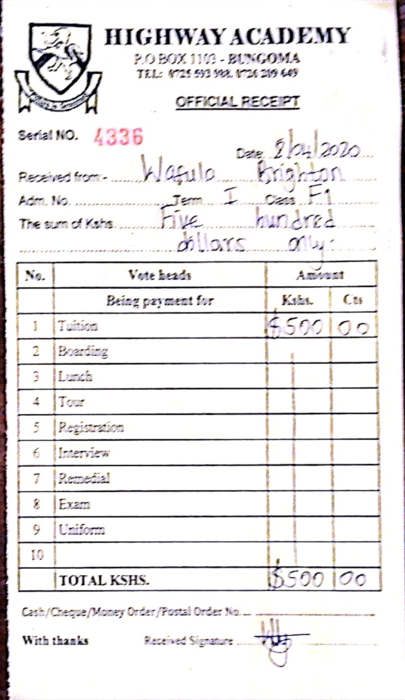 HIGHWAY ACADEMY
P.O BOX 1103 - BUNGOMA
TEL: 0725 593 988, 0726 209 649
OFFICIAL RECEIPT
Serial NO. 4336
Date 8/04/2020
Received from:- Wafula Brighton
Adm. No. Term I Class F1
The sum of Kshs Five hundred
dollars only.
No. Vote heads Amount
Being payment for Kshs. Cts
1 Tuition $500 00
2 Boarding
3 Lunch
4 Tour
5 Registration
6 Interview
7 Remedial
8 Exam
9 Uniform
10
TOTAL KSHS. $500 00
Cash/Cheque/Money Order/Postal Order No.
With thanks Received Signature